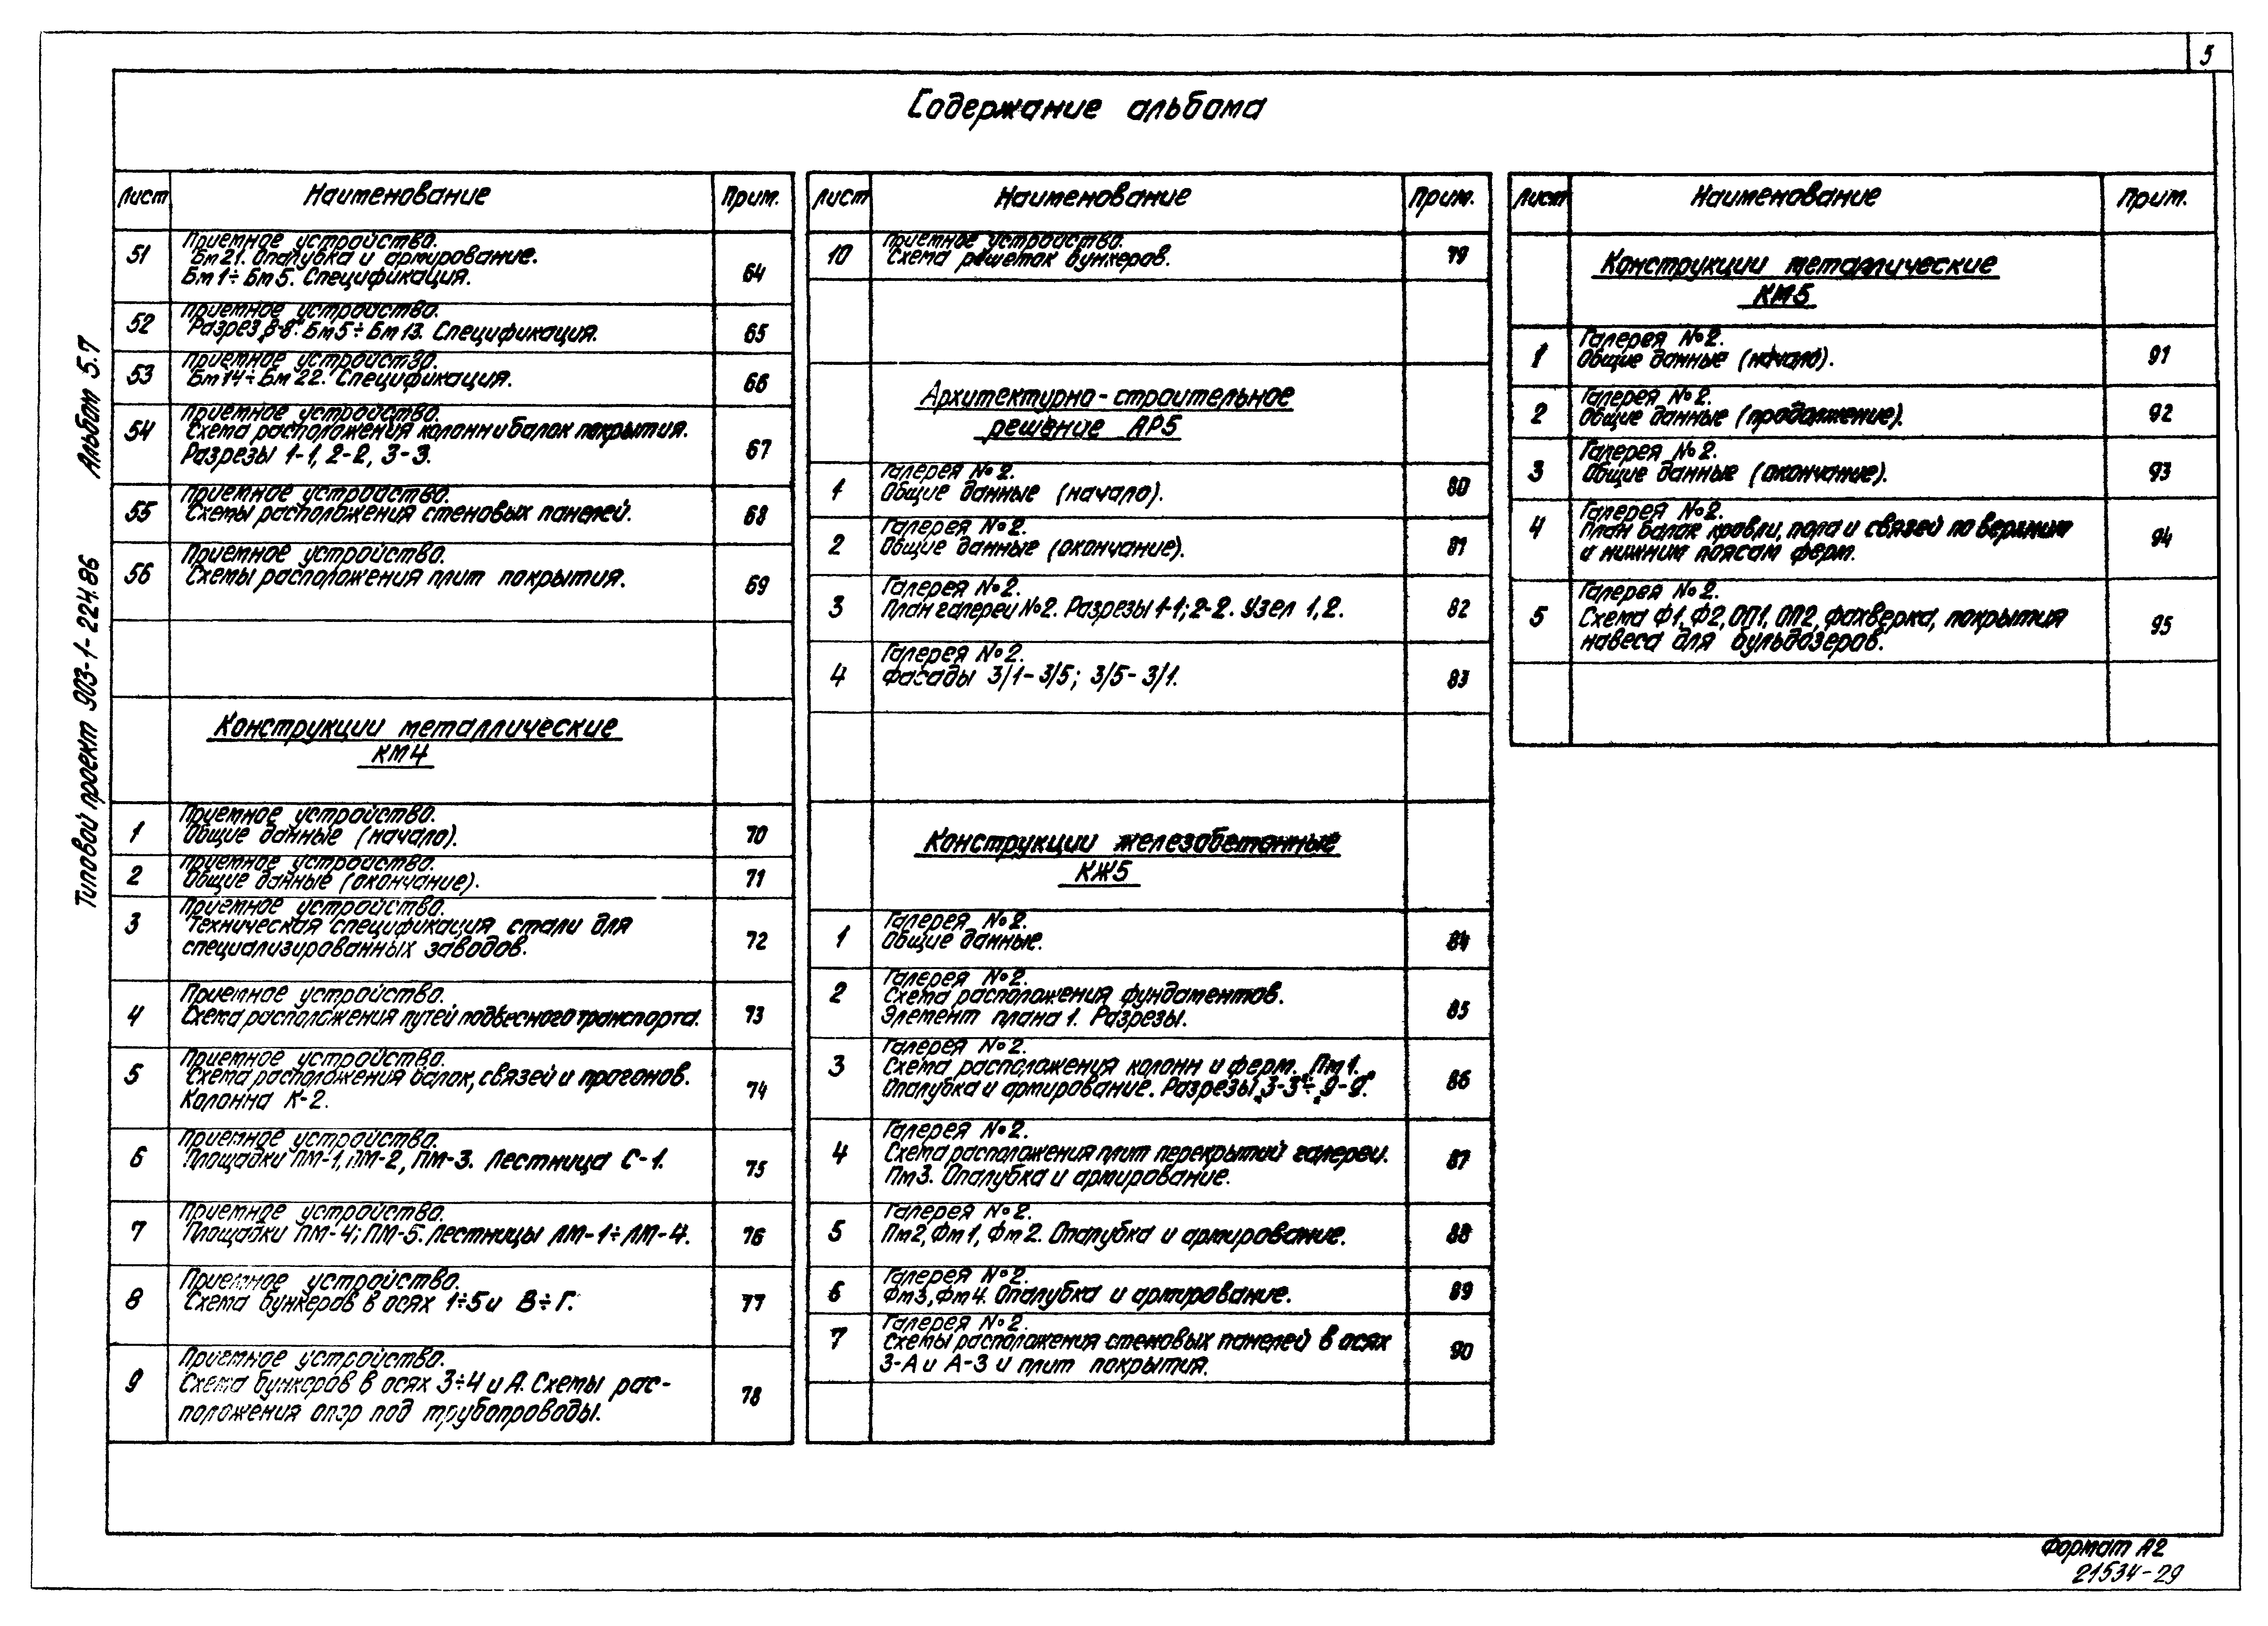 5
Содержание альбома
Типовой проект 903-1-224.86 Альбом 5.7
Лист Наименование Прим.
51 Приемное устройство.
Бм21. Опалубка и армирование.
Бм1÷Бм5. Спецификация. 64
52 Приемное устройство.
Разрез „8-8". Бм5÷Бм13. Спецификация. 65
53 Приемное устройство.
Бм14÷Бм22. Спецификация. 66
54 Приемное устройство.
Схема расположения колонн и балок покрытия.
Разрезы 1-1, 2-2, 3-3. 67
55 Приемное устройство.
Схемы расположения стеновых панелей. 68
56 Приемное устройство.
Схемы расположения плит покрытия. 69
Конструкции металлические
КМ4
1 Приемное устройство.
Общие данные (начало). 70
2 Приемное устройство.
Общие данные (окончание). 71
3 Приемное устройство.
Техническая спецификация стали для
специализированных заводов. 72
4 Приемное устройство.
Схема расположения путей подвесного транспорта. 73
5 Приемное устройство.
Схема расположения балок, связей и прогонов.
Колонна К-2. 74
6 Приемное устройство.
Площадки ПМ-1, ПМ-2, ПМ-3. Лестница С-1. 75
7 Приемное устройство.
Площадки ПМ-4; ПМ-5. Лестницы ЛМ-1÷ЛМ-4. 76
8 Приемное устройство.
Схема бункеров в осях 1÷5 и В÷Г. 77
9 Приемное устройство.
Схема бункеров в осях 3÷4 и А. Схемы рас-
положения опор под трубопроводы. 78
Лист Наименование Прим.
10 Приемное устройство.
Схема решеток бункеров. 79
Архитектурно-строительное
решение АР5
1 Галерея №2.
Общие данные (начало). 80
2 Галерея №2.
Общие данные (окончание). 81
3 Галерея №2.
План галереи №2. Разрезы 1-1; 2-2. Узел 1,2. 82
4 Галерея №2.
Фасады 3/1-3/5; 3/5-3/1. 83
Конструкции железобетонные
КЖ5
1 Галерея №2.
Общие данные. 84
2 Галерея №2.
Схема расположения фундаментов.
Элемент плана 1. Разрезы. 85
3 Галерея №2.
Схема расположения колонн и ферм. Пм1.
Опалубка и армирование. Разрезы „3-3"÷„9-9". 86
4 Галерея №2.
Схема расположения плит перекрытий галереи.
Пм3. Опалубка и армирование. 87
5 Галерея №2.
Пм2, Фм1, Фм2. Опалубка и армирование. 88
6 Галерея №2.
Фм3, Фм4. Опалубка и армирование. 89
7 Галерея №2.
Схемы расположения стеновых панелей в осях
3-А и А-3 и плит покрытия. 90
Лист Наименование Прим.
Конструкции металлические
КМ5
1 Галерея №2.
Общие данные (начало). 91
2 Галерея №2.
Общие данные (продолжение). 92
3 Галерея №2.
Общие данные (окончание). 93
4 Галерея №2.
План балок кровли, пола и связей по верхним
и нижним поясам ферм. 94
5 Галерея №2.
Схема Ф1, Ф2, ОП1, ОП2, фахверка, покрытия
навеса для бульдозеров. 95
Формат А2
21534-29